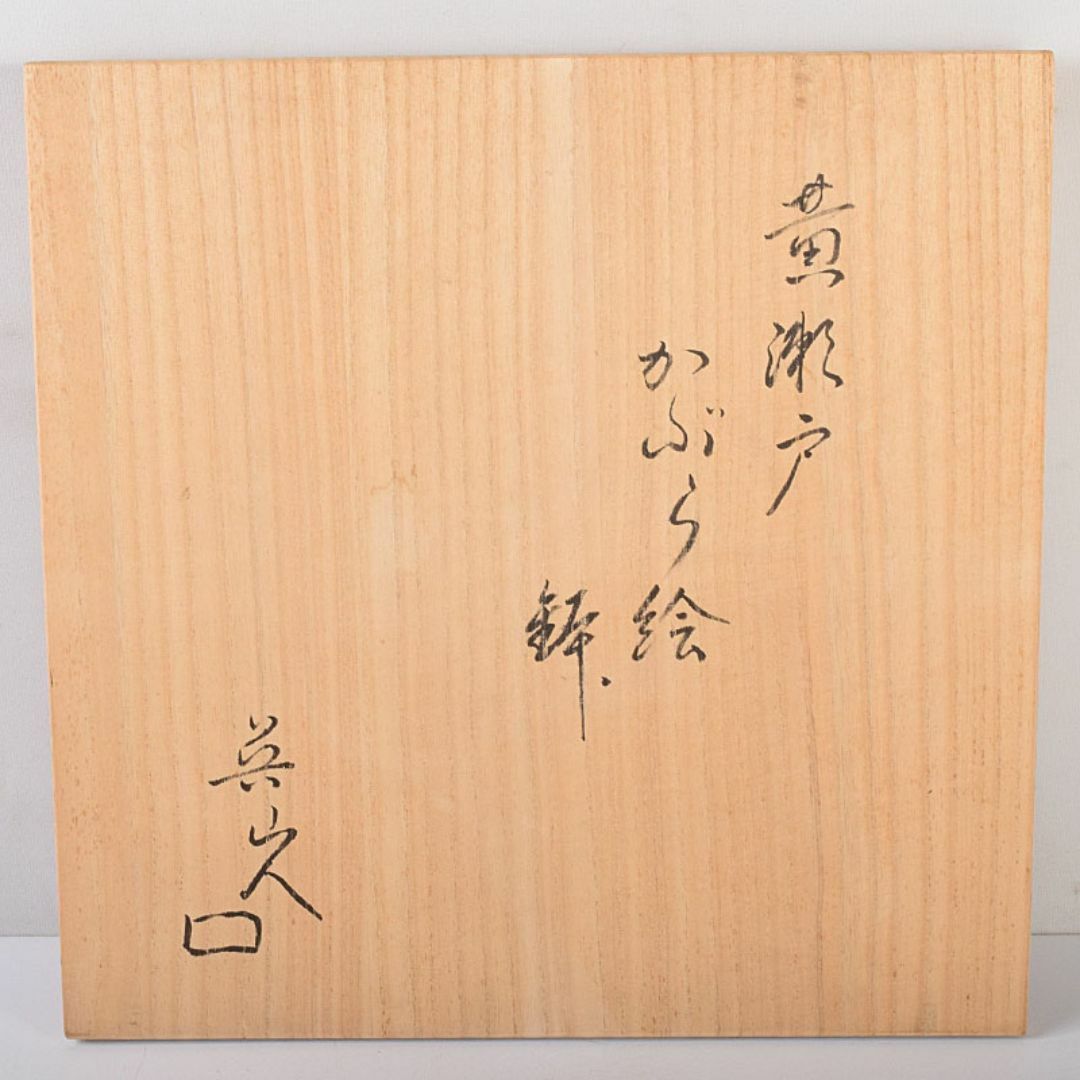 黄瀬戸
かぶら絵
鉢
山人